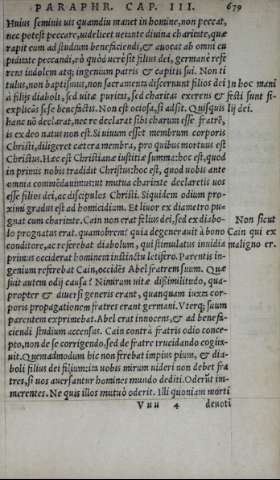 PARAPHR. CAP. III. 679
Huius seminis uis quamdiu manet in homine, non peccat,
nec potest peccare, uidelicet uetante diuina charitate, quæ
rapit eum ad studium beneficiendi, & auocat ab omni cu
piditate peccandi, rõ quòd uerè sit filius dei, germanè refe
rens indolem atq; ingenium patris & capitis sui. Non ti
tulus, non baptismus, non sacramenta discernunt filios dei In hoc mani
à filijs diaboli, sed uitæ puritas, sed charitas exerens & festi sunt fi-
explicãs se benefactis. Non est ociosa, si adsit. Quisquis lij dei.
hanc nõ declarat, nec re declarat sibi charum esse fratrẽ,
is ex deo natus non est. Si uiuum esset membrum corporis
Christi, diligeret cætera membra, pro quibus mortuus est
Christus. Hæc est Christianæ iustitiæ summa: hoc est, quod
in primis nobis tradidit Christus: hoc est, quod uobis ante
omnia commẽdauimus: ut mutua charitate declaretis uos
esse filios dei, ac discipulos Christi. Siquidem odium pro-
ximi gradus est ad homicidium. Et liuor ex diametro pu-
gnat cum charitate. Cain non erat filius dei, sed ex diabo- Non sicut
lo prognatus erat. quamobrem? quia degenerauit à bono Cain qui ex
conditore, ac referebat diabolum, qui stimulatus inuidia maligno er.
primus occiderat hominem instinctu letifero. Parentis in-
genium referebat Cain, occidẽs Abel fratrem suum. Quæ
fuit autem odij causa? Nimirum uitæ dissimilitudo, qua-
propter & diuersi generis erant, quanquam iuxta cor-
poris propagationem fratres erant germani. Vterq; suum
parentem exprimebat. Abel erat innocens, & ad benefa-
ciendi studium accensus. Cain contrà fratris odio conce-
pto, non de se corrigendo, sed de fratre trucidando cogita-
uit. Quemadmodum hic non ferebat impius pium, & dia-
boli filius dei filium: ita uobis mirum uideri non debet fra
tres, si uos auersantur homines mundo dediti. Oderũt im-
merentes. Ne quas illos mutuò oderit. Illi quoniam morti
Vuu 4 deuoti